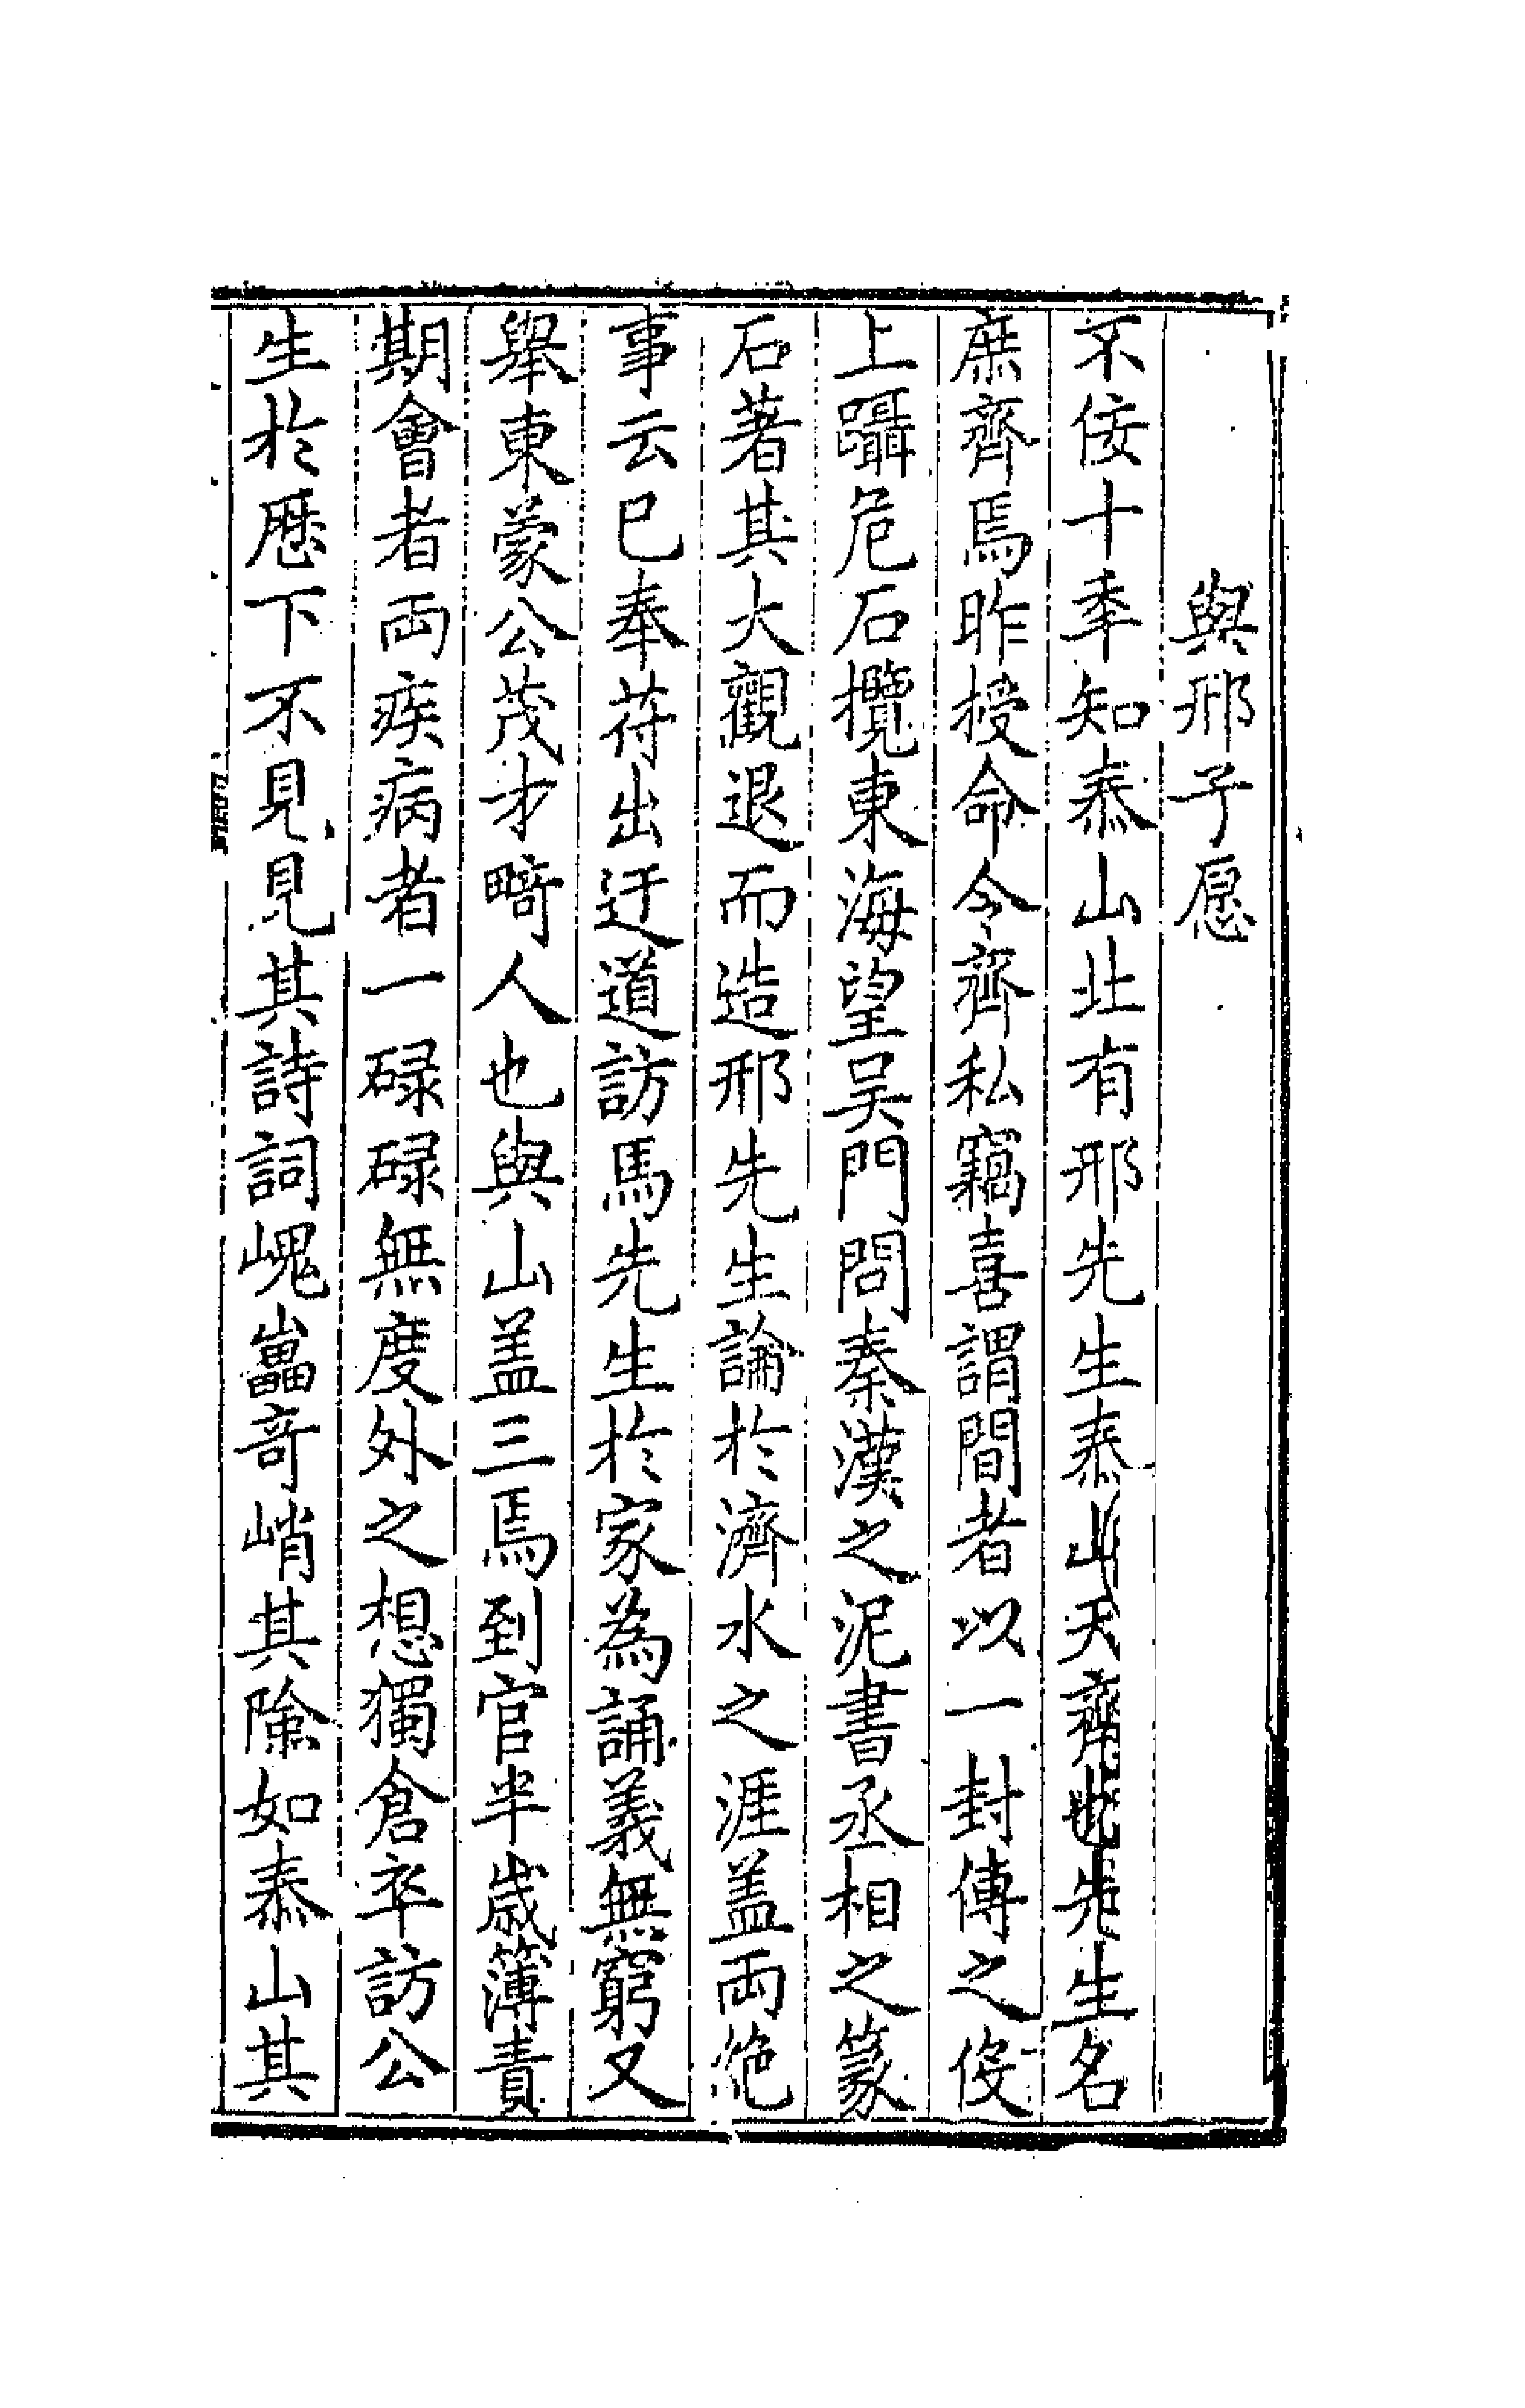 與邢子愿
不佞十季知泰山北有邢先生泰山天齊也先生名
庶齊焉昨授命令齊私竊喜謂間者以一封傳之佞
上躡危石攬東海望吴門問秦漢之泥書丞相之篆
石著其大觀退而造邢先生論於濟水之涯盖兩絶
事云已奉苻出迂道訪馬先生於家為誦義無窮又
舉東蒙公茂才畸人也與山盖三焉到官半歲簿責
期會者両疾病者一碌碌無度外之想獨倉卒訪公
生於厯下不見見其詩詞嵬畾竒峭其險如泰山其